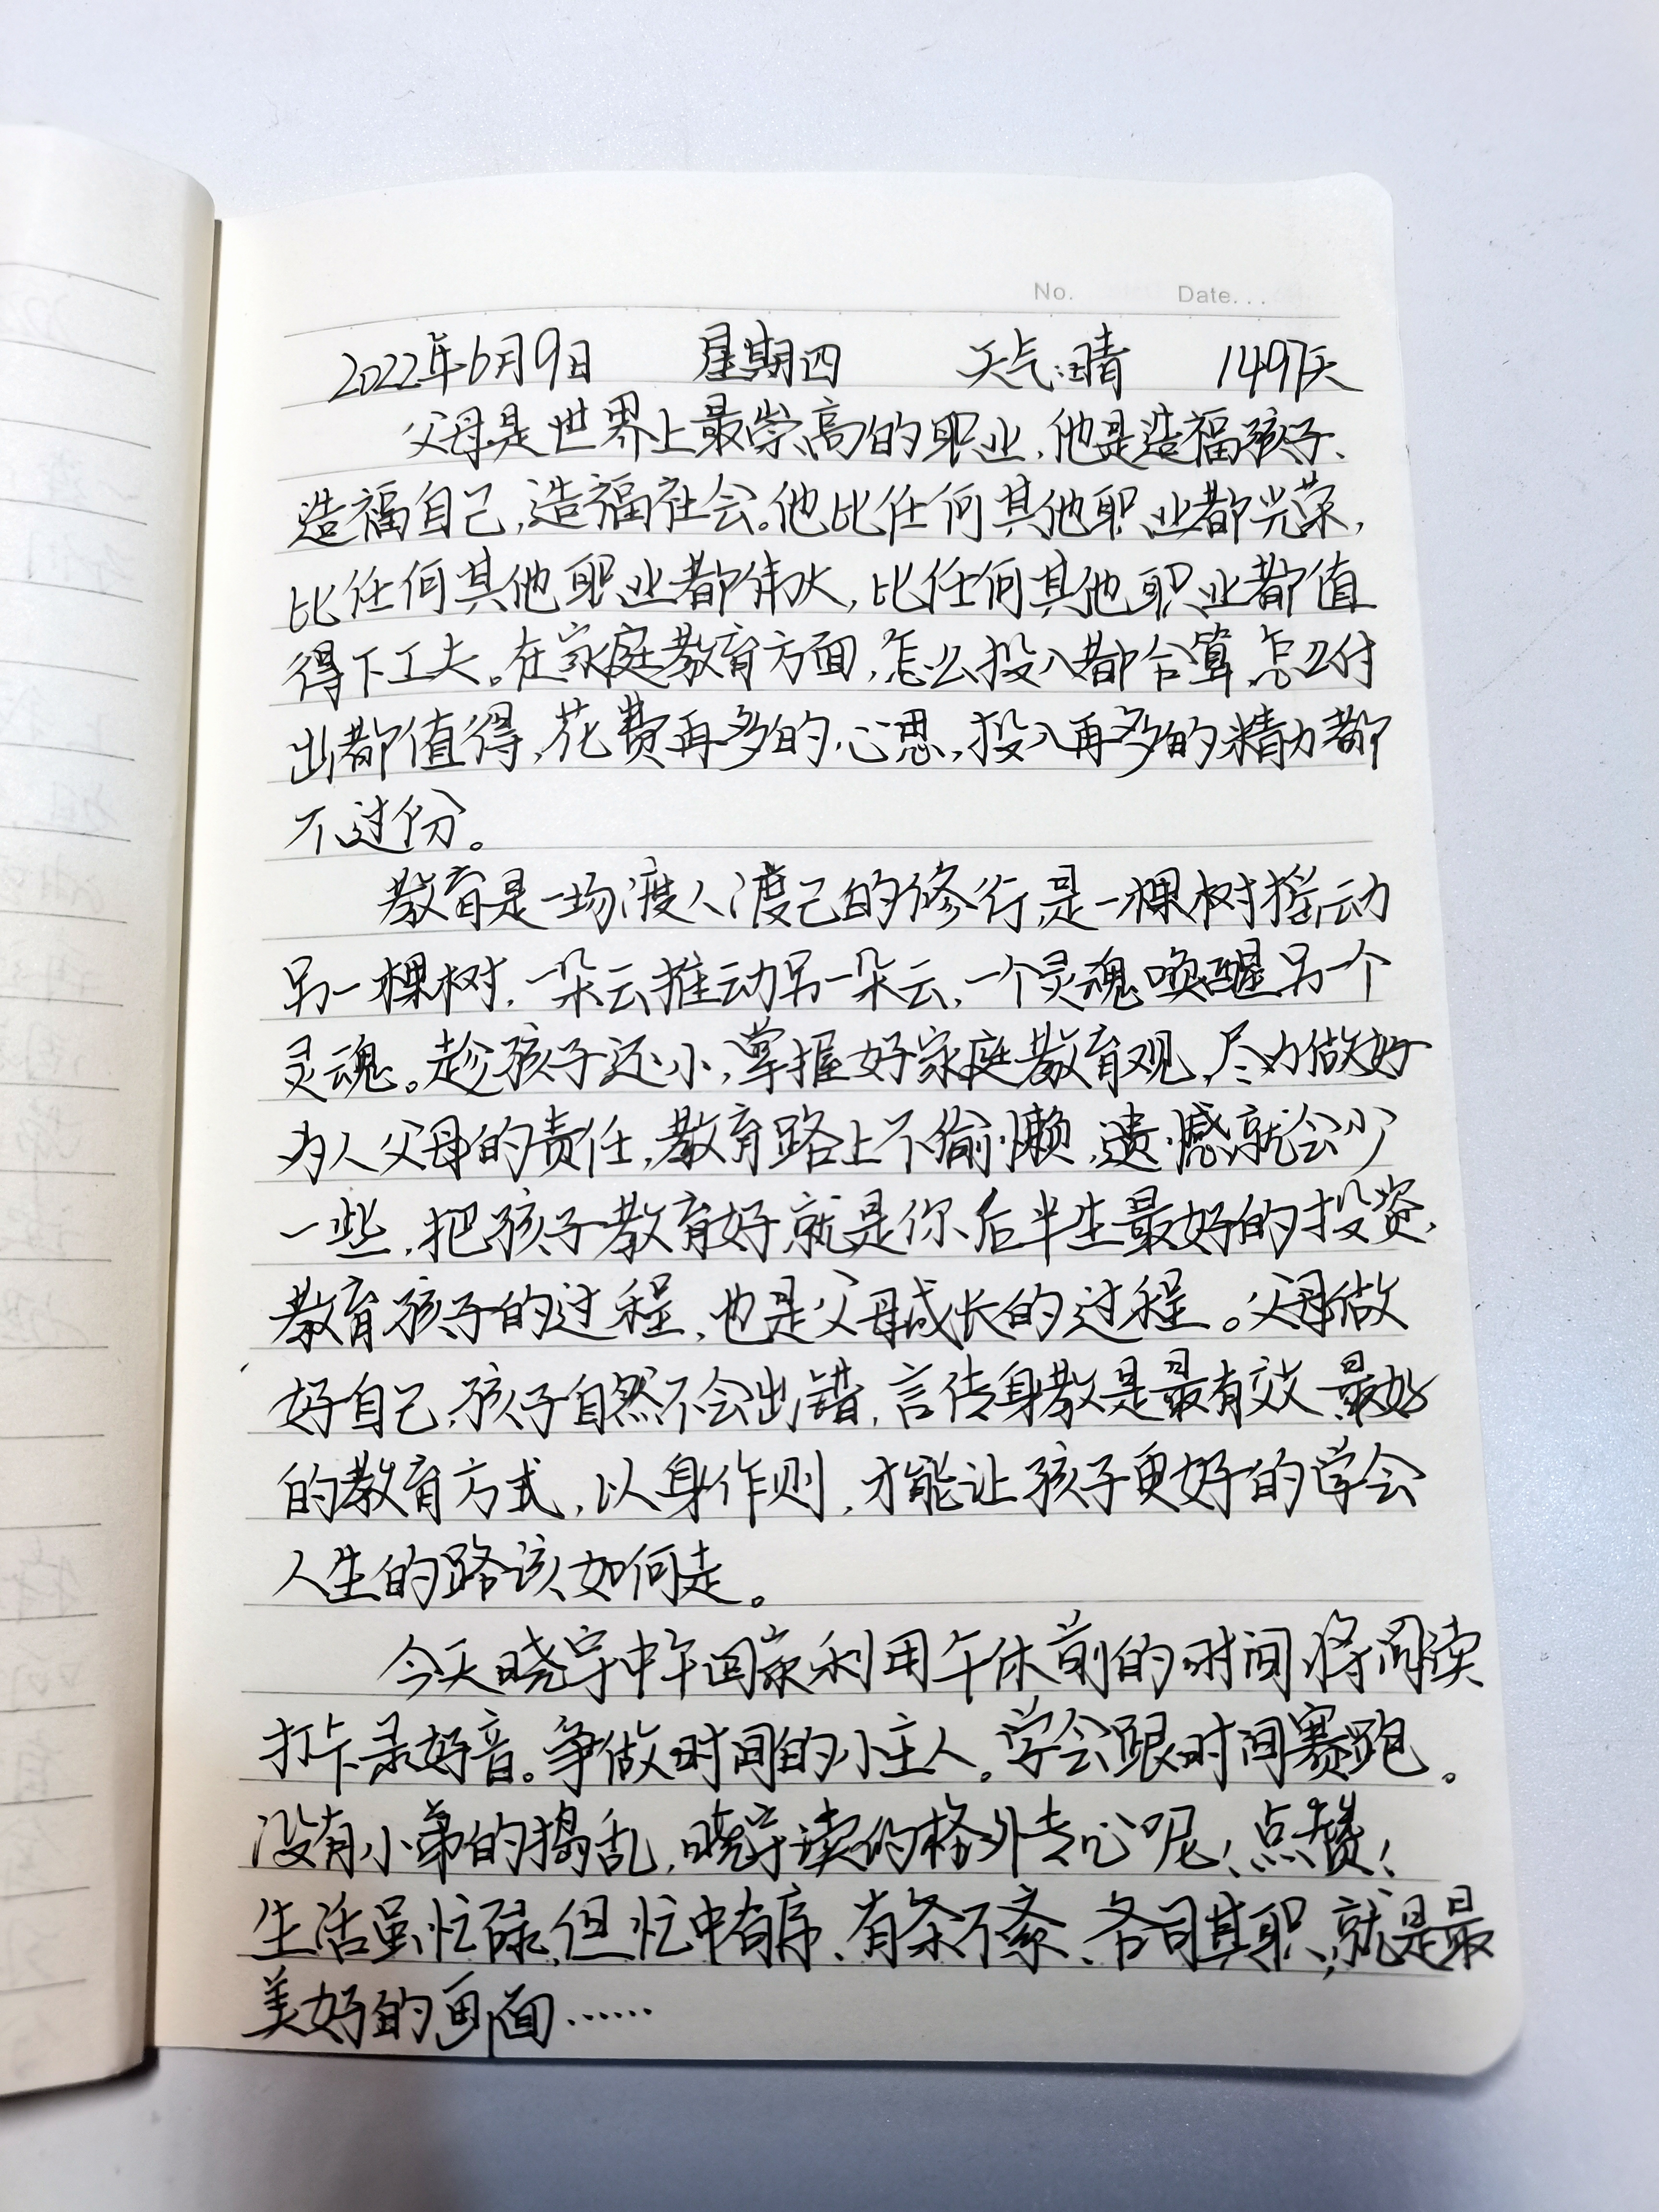 No. Date...
2022年6月9日 星期四 天气:晴 1497天
父母是世界上最崇高的职业,他是造福孩子、
造福自己,造福社会。他比任何其他职业都光荣,
比任何其他职业都伟大,比任何其他职业都值
得下工夫。在家庭教育方面,怎么投入都合算,怎么付
出都值得,花费再多的心思,投入再多的精力都
不过份。
教育是一场渡人渡己的修行,是一棵树摇动
另一棵树,一朵云推动另一朵云,一个灵魂唤醒另一个
灵魂。趁孩子还小,掌握好家庭教育观,尽力做好
为人父母的责任,教育路上不偷懒,遗憾就会少
一些,把孩子教育好,就是你后半生最好的投资,
教育孩子的过程,也是父母成长的过程。父母做
好自己,孩子自然不会出错,言传身教是最有效、最好
的教育方式,以身作则,才能让孩子更好的学会
人生的路该如何走。
今天晓宇中午回家利用午休前的时间将阅读
打卡录好音。争做时间的小主人。学会跟时间赛跑。
没有小弟的捣乱,晓宇读的格外专心呢!点赞!
生活虽忙碌,但忙中有序、有条不紊、各司其职,就是最
美好的画面……